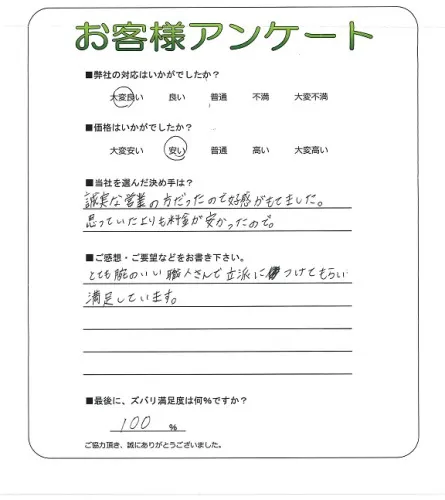 お客様アンケート
■弊社の対応はいかがでしたか？
大変良い 良い 普通 不満 大変不満
■価格はいかがでしたか？
大変安い 安い 普通 高い 大変高い
■当社を選んだ決め手は？
誠実な営業の方だったので好感がもてました。
思っていたよりも料金が安かったので。
■ご感想・ご要望などをお書き下さい。
とても腕のいい職人さんで立派につけてもらい
満足しています。
■最後に、ズバリ満足度は何%ですか？
100 %
ご協力頂き、誠にありがとうございました。